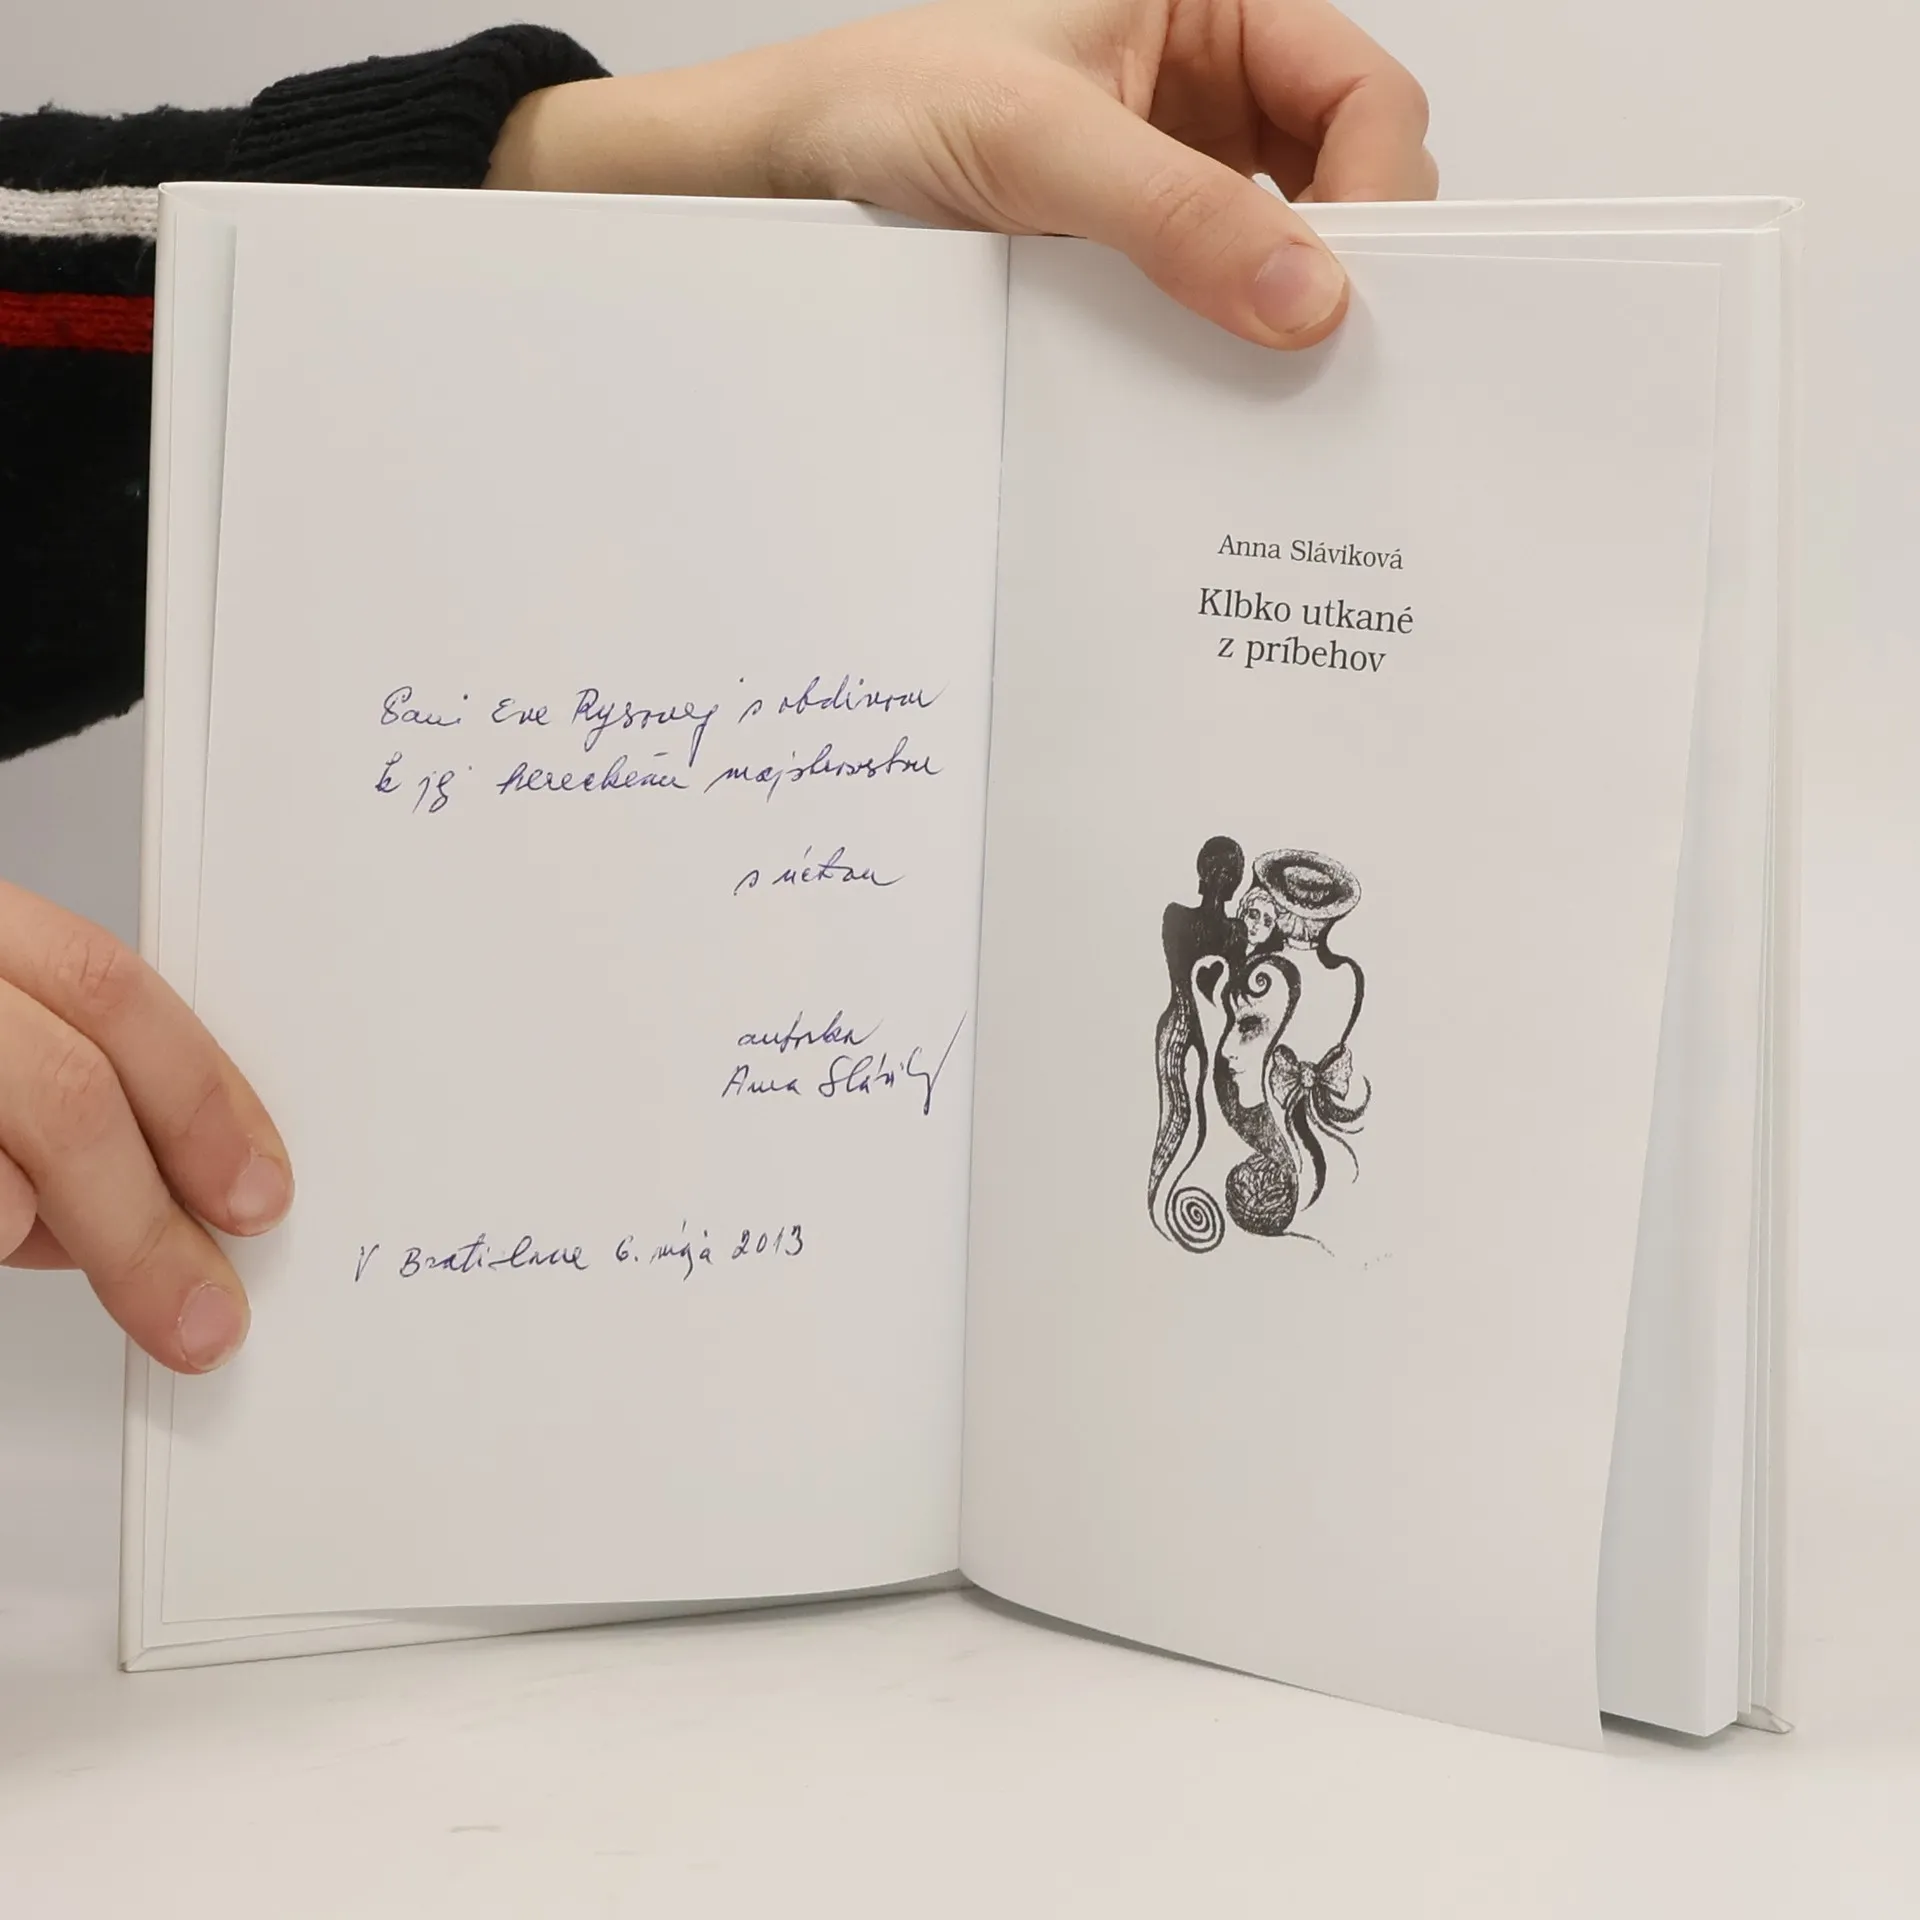 Pani Eve Rysovej s obdivom
k jej hereckému majstrovstvu
s úctou
autorka
Anna Slávik
V Bratislave 6. mája 2013
Anna Sláviková
Klbko utkané
z príbehov